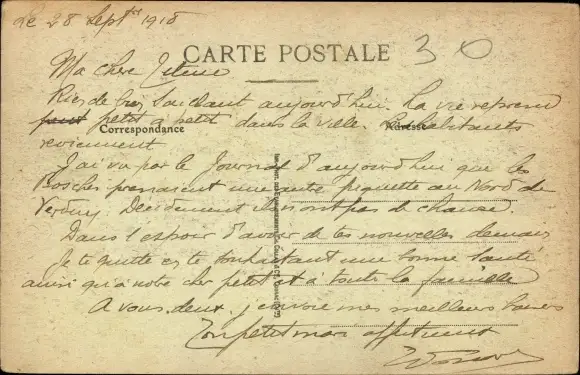 Le 28 Sept 1918
CARTE POSTALE
30
Ma chere
Rien de bien saillant aujourd'hui. La vie reprend
petit a petit dans la ville. Les habitants
Correspondance
Adresse
reviennent
J'ai vu par le Journal d'aujourd'hui que les
Boches prenaient une autre piquette au Nord de
Verdun. Decidement ils n'ont pas de chance.
Dans l'espoir d'avoir de tes nouvelles demain
Je te quitte en te souhaitant une bonne santé
ainsi qu'a notre cher petit et à toute la famille
A vous deux j'envoie mes meilleurs baisers
Ton petit mari